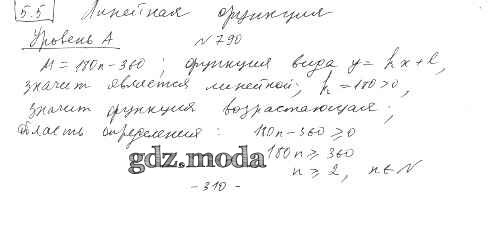 5.5 Линейная функция
Уровень А №790
M = 180n - 360 ; функция вида y = kx + l,
значит является линейной; k = 180 > 0,
значит функция возрастающая;
область определения : 180n - 360 ⩾ 0
180n ⩾ 360
gdz.moda
n ⩾ 2, n ∈ N
- 310 -